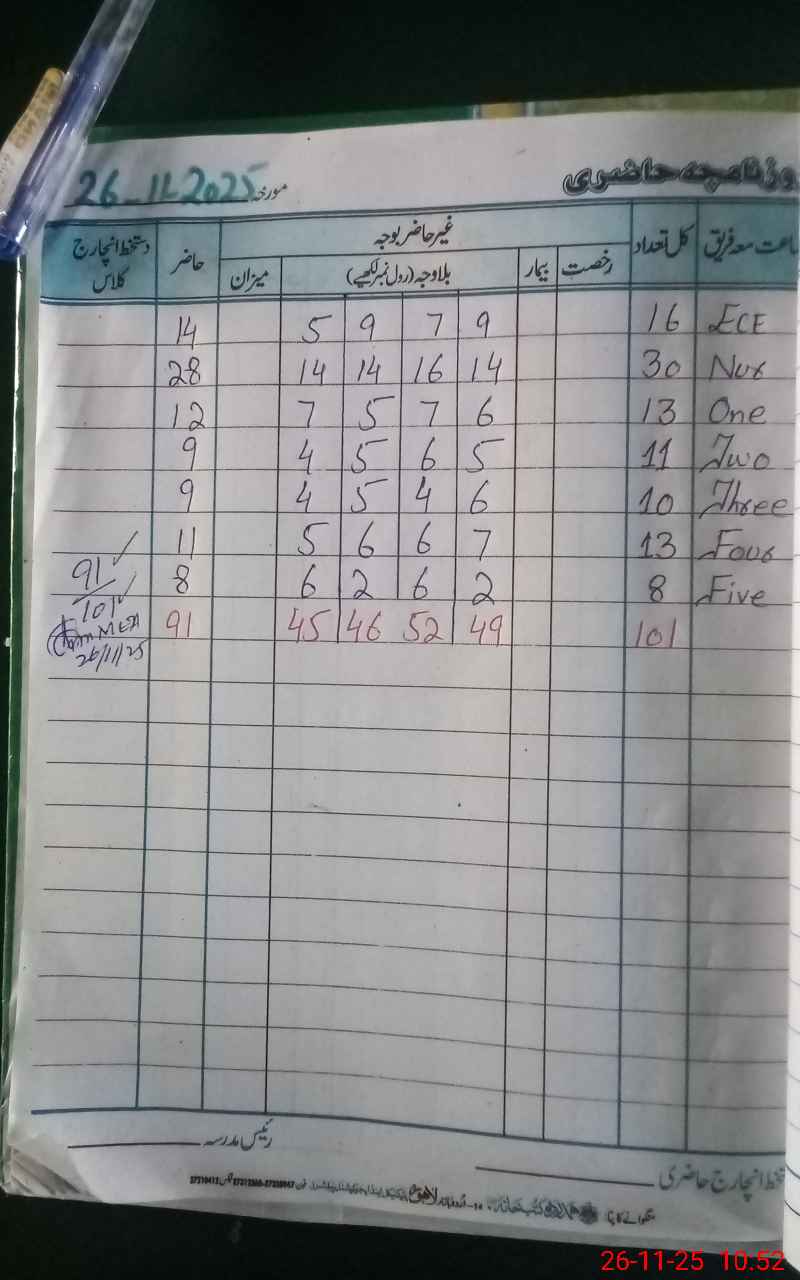 روزنامچہ حاضری
مورخہ 26-11-2025
جماعت معہ فریق کل تعداد غیر حاضر بوجہ حاضر دستخط انچارج کلاس
رخصت بیمار بلاوجہ (رول نمبر لکھیے) میزان
14 5 9 7 9 16 ECE
28 14 14 16 14 30 Nur
12 7 5 7 6 13 One
9 4 5 6 5 11 Two
9 4 5 4 6 10 Three
11 5 6 6 7 13 Four
91 8 6 2 6 2 8 Five
101 91 45 46 52 49 101
MEA
26/11/25
رئیس مدرسہ
دستخط انچارج حاضری
26-11-25 10:52